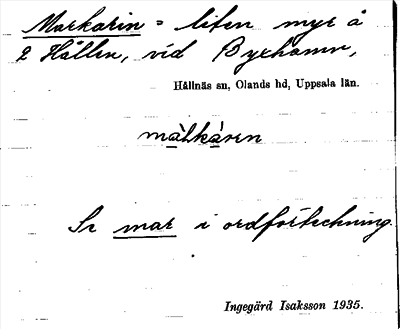 Markarin = liten myr å
2 Hållen, vid Byxhamn,
Hållnäs sn, Olands hd, Uppsala län.
màlkáren
Se mar i ordförteckning.
Ingegärd Isaksson 1935.